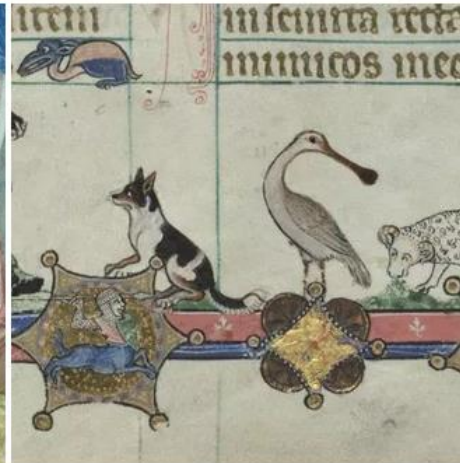 in semita recta
inimicos meo